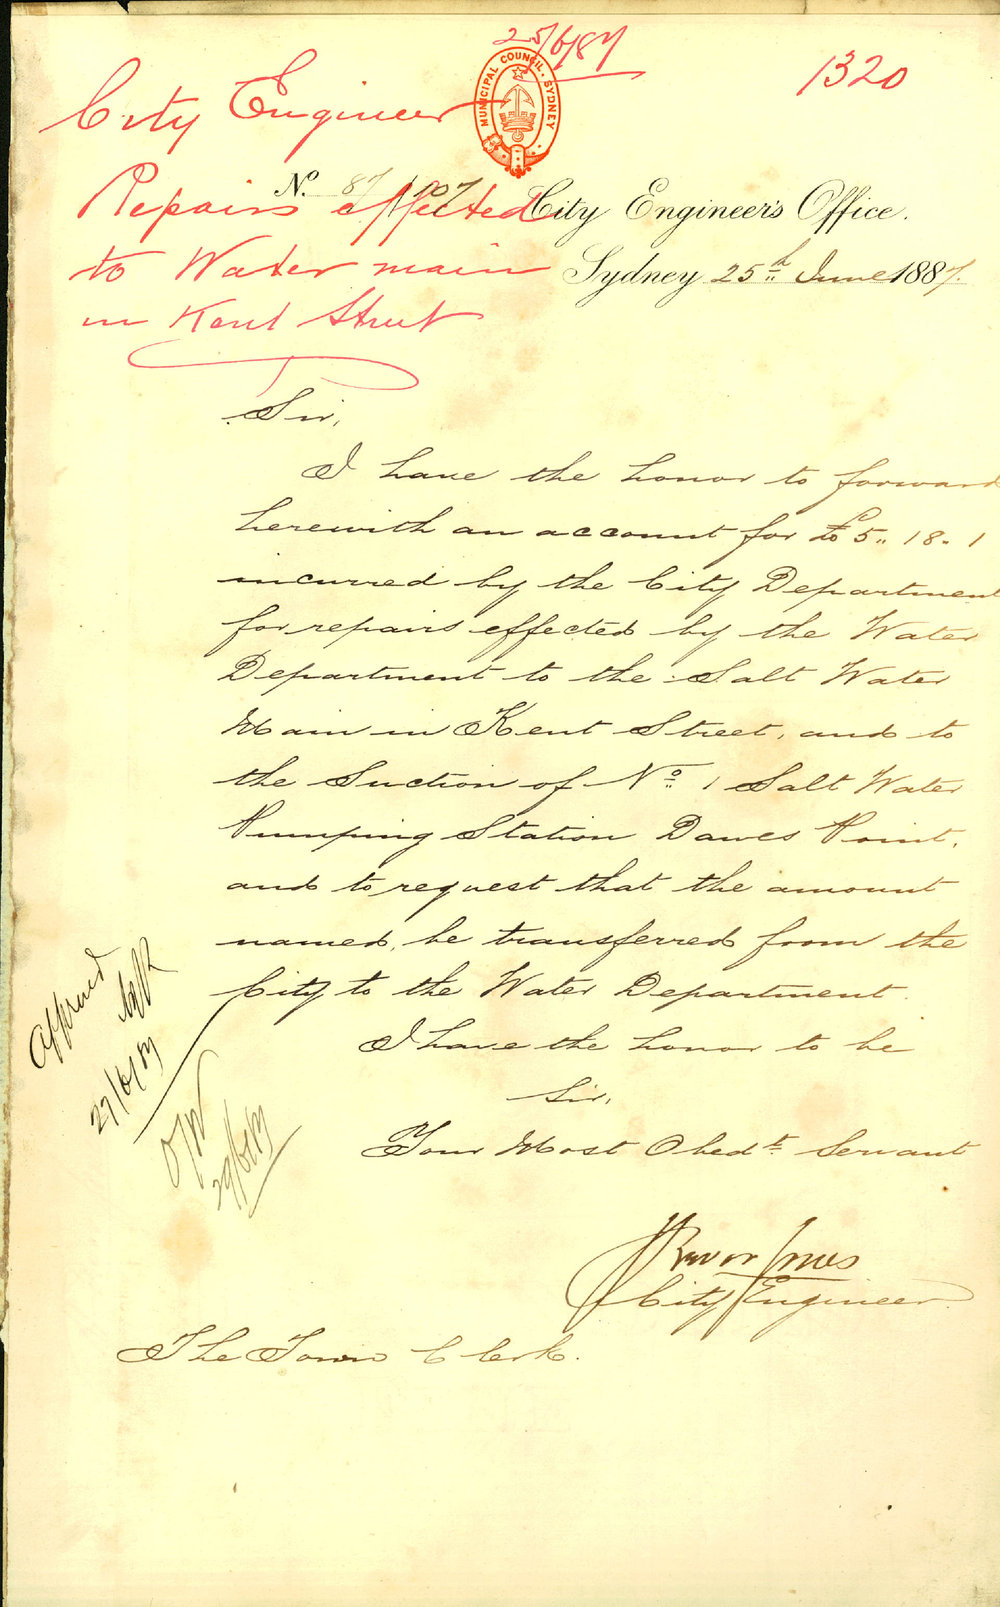 25/6/87
1320
City Engineer
Repairs effected
to Water main
in Kent Street
MUNICIPAL COUNCIL · SYDNEY
No. 87/
City Engineer's Office.
Sydney 25th June 1887.
Sir,
I have the honor to forward
herewith an account for £5.. 18. 1
incurred by the City Department
for repairs effected by the Water
Department to the Salt Water
Main in Kent Street, and to
the Suction of No. 1 Salt Water
Pumping Station Dawes Point,
and to request that the amount
named, be transferred from the
City to the Water Department.
I have the honor to be
Sir,
Your Most Obedt. Servant
Trevor Jones
City Engineer
The Town Clerk.
Approved
27/6/87
29/6/87